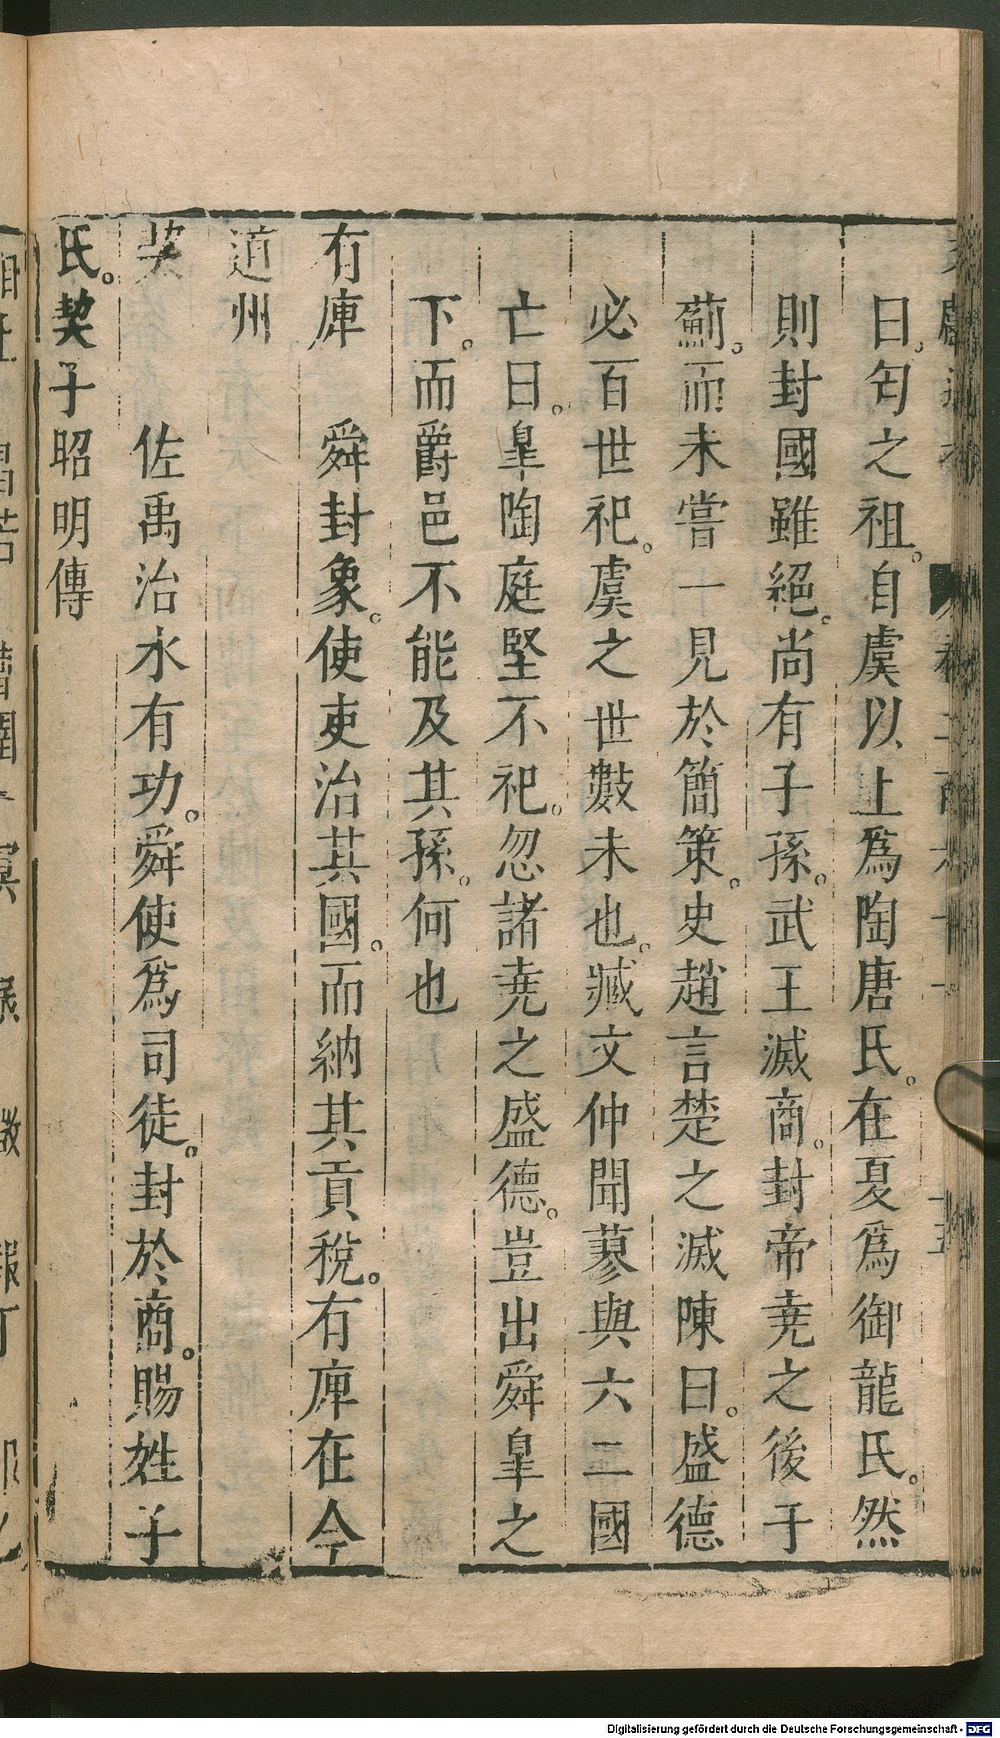 曰。匄之祖。自虞以上爲陶唐氏。在夏爲御龍氏。然
則封國雖絕。尚有子孫。武王滅商。封帝堯之後于
薊。而未嘗一見於簡策。史趙言楚之滅陳曰。盛德
必百世祀。虞之世數未也。臧文仲聞蓼與六二國
亡曰。皐陶庭堅不祀。忽諸堯之盛德。豈出舜皐之
下。而爵邑不能及其孫。何也
有庳　舜封象。使吏治其國。而納其貢稅。有庳在今
道州
契　佐禹治水有功。舜使爲司徒。封於商。賜姓子
氏。契子昭明傳
Digitalisierung gefördert durch die Deutsche Forschungsgemeinschaft - DFG